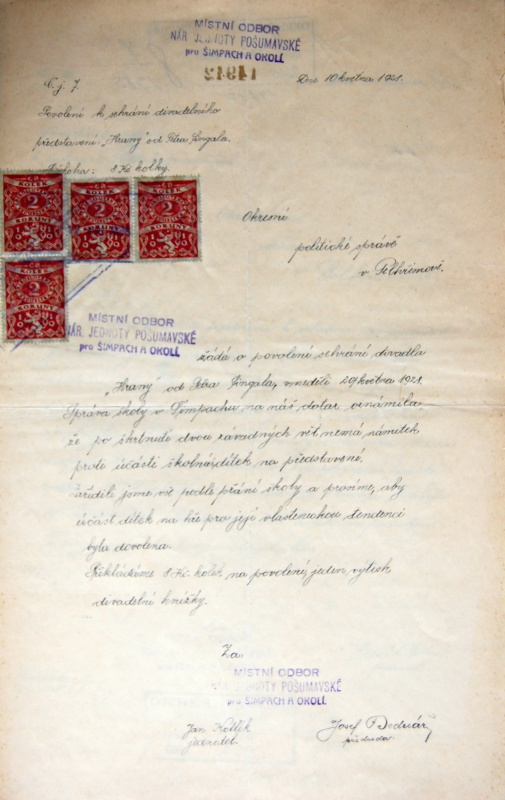 MÍSTNÍ ODBOR
NÁR. JEDNOTY POŠUMAVSKÉ
pro ŠIMPACH A OKOLÍ
14942
Č. j. 7.
Dne 10 května 1921.
Povolení k sehrání divadelního
představení: "Hrany" od Petra Fingala.
Příloha: 8 Kč kolky.
ČR
KOLEK
2
KORUNY
ČR
KOLEK
2
KORUNY
ČR
KOLEK
2
KORUNY
KOLEK
2
KORUNY
Okresní
politické správě
v Pelhřimově.
MÍSTNÍ ODBOR
NÁR. JEDNOTY POŠUMAVSKÉ
pro ŠIMPACH A OKOLÍ
žádá o povolení sehrání divadla
"Hrany" od Petra Fingala, v neděli 29 května 1921.
Správa školy v Šimpachu na náš dotaz oznámila,
že po škrtnutí dvou závadných vět nemá námitek
proti účasti školních dítek na představení.
Zařídili jsme vše podle přání školy a prosíme, aby
účast dítek na hře pro její vlasteneckou tendenci
byla dovolena.
Přikládáme 8 Kč kolek na povolení, jeden výtisk
divadelní knížky.
Za
MÍSTNÍ ODBOR
NÁR. JEDNOTY POŠUMAVSKÉ
pro ŠIMPACH A OKOLÍ
Jan Kotlík
jednatel.
Josef Bednář,
předseda.